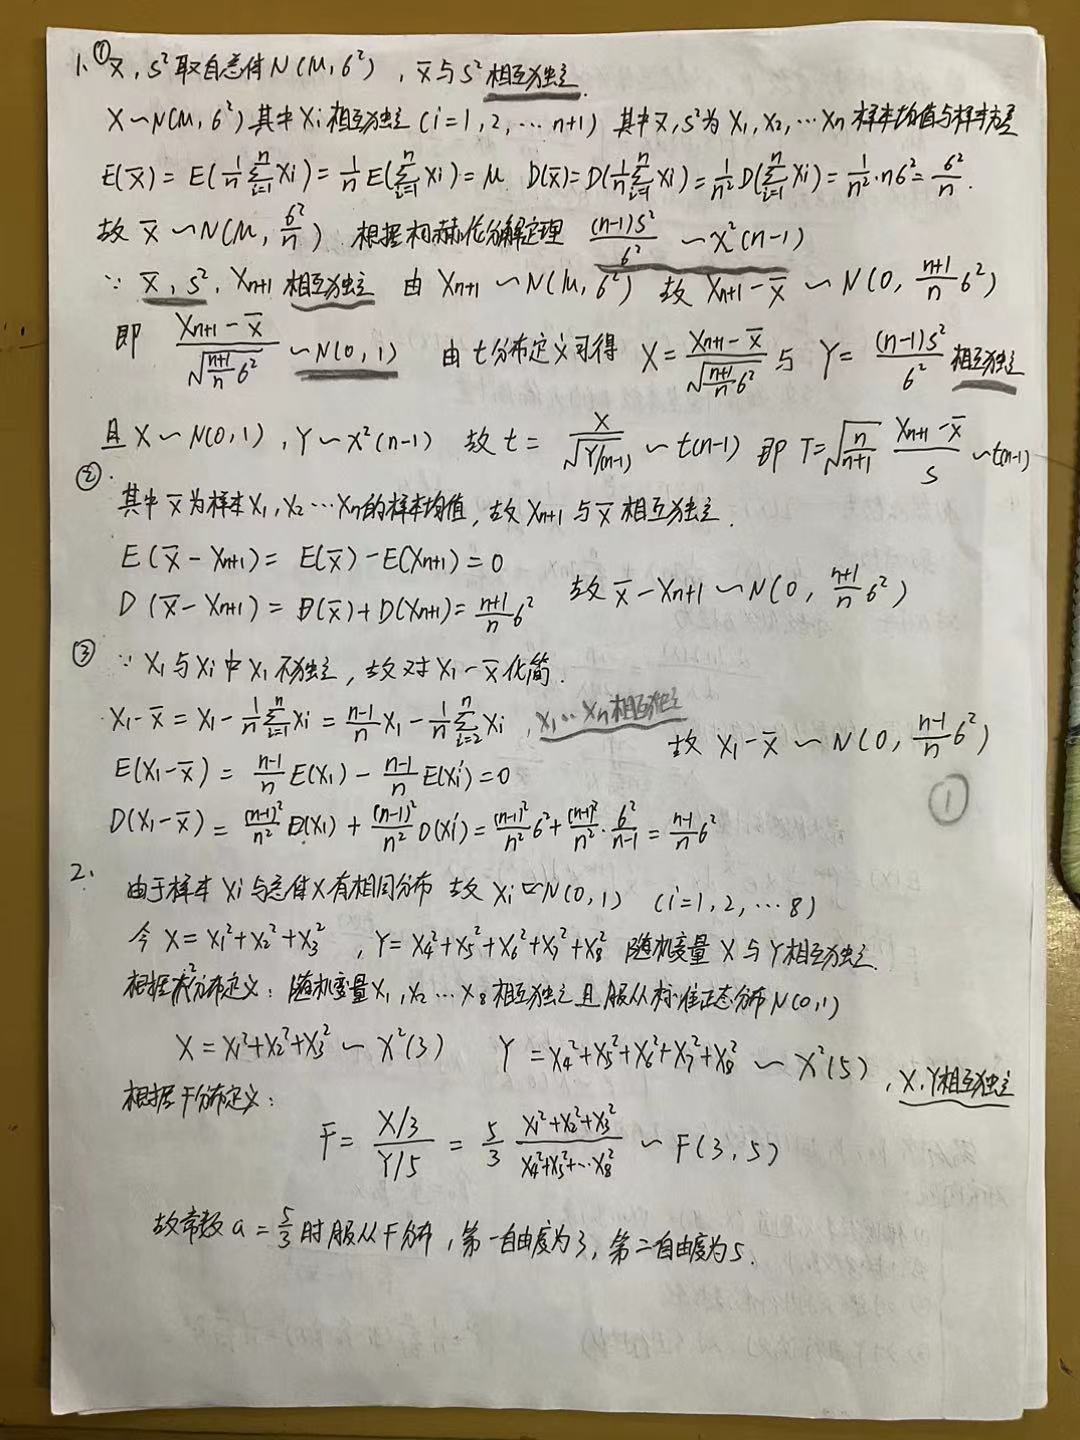 1、① x̄, S²取自总体N(μ,σ²), x̄与S²相互独立.
X~N(μ,σ²)其中Xi相互独立(i=1,2,…n+1) 其中x̄,S²为X₁,X₂,…Xn样本均值与样本方差
E(x̄)=E(1/n Σ_{i=1}^{n} Xi)=1/n E(Σ_{i=1}^{n} Xi)=μ. D(x̄)=D(1/n Σ_{i=1}^{n} Xi)=1/n² D(Σ_{i=1}^{n} Xi)=1/n²·nσ²=σ²/n.
故 x̄~N(μ,σ²/n) 根据柯赫伦分解定理 (n-1)S²/σ² ~χ²(n-1)
∵ x̄, S², Xn+1 相互独立 由 Xn+1~N(μ,σ²) 故 Xn+1-x̄ ~ N(0, (n+1)/n σ²)
即 (Xn+1-x̄)/√((n+1)/n σ²) ~N(0,1) 由t分布定义可得 X=(Xn+1-x̄)/√((n+1)/n σ²) 与 Y=(n-1)S²/σ² 相互独立
且 X~N(0,1), Y~χ²(n-1) 故 t=X/√(Y/(n-1)) ~t(n-1) 即 T=√(n/(n+1)) (Xn+1-x̄)/S ~t(n-1)
②
其中x̄为样本X₁,X₂…Xn的样本均值,故Xn+1与x̄相互独立.
E(x̄-Xn+1)=E(x̄)-E(Xn+1)=0
D(x̄-Xn+1)=D(x̄)+D(Xn+1)=(n+1)/n σ² 故 x̄-Xn+1~N(0, (n+1)/n σ²)
③ ∵ X₁与Xi中X₁不独立,故对X₁-x̄化简.
X₁-x̄=X₁-1/n Σ_{i=1}^{n} Xi=(n-1)/n X₁-1/n Σ_{i=2}^{n} Xi, X₁…Xn相互独立
故 X₁-x̄~N(0, (n-1)/n σ²)
E(X₁-x̄)=(n-1)/n E(X₁)-(n-1)/n E(Xi')=0
①
D(X₁-x̄)=(n-1)²/n² D(X₁)+(n-1)²/n² D(Xi')=(n-1)²/n² σ²+(n-1)²/n²·σ²/(n-1)=(n-1)/n σ²
2、
由于样本Xi与总体X有相同分布 故Xi~N(0,1) (i=1,2,…8)
令 X=X₁²+X₂²+X₃², Y=X₄²+X₅²+X₆²+X₇²+X₈² 随机变量X与Y相互独立.
根据χ²分布定义: 随机变量X₁,X₂…X₈相互独立且服从标准正态分布N(0,1)
X=X₁²+X₂²+X₃²~χ²(3) Y=X₄²+X₅²+X₆²+X₇²+X₈²~χ²(5), X,Y相互独立
根据F分布定义:
F=(X/3)/(Y/5)=5/3 (X₁²+X₂²+X₃²)/(X₄²+X₅²+…X₈²)~F(3,5)
故常数a=5/3时服从F分布,第一自由度为3,第二自由度为5.